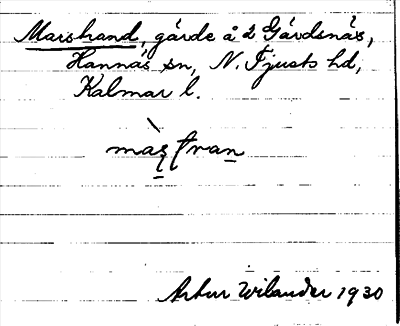 Marstrand, gärde å 2 Gärdsnäs,
Hannäs sn, N. Tjusts hd,
Kalmar l.
Artur Wilander 1930